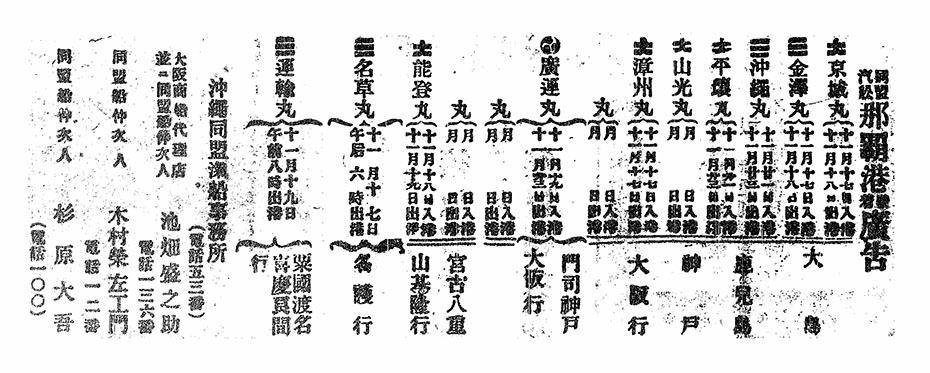 同盟
汽船
那覇港發着廣告
京城丸
十一月十七日入港
十一月十八日出港
金澤丸
十一月十七日入港
十一月十八日出港
大島
沖繩丸
十一月廿一日入港
十一月廿二日出港
平壤丸
十一月廿一日入港
十一月廿三日出港
鹿兒島
山光丸
月 日入港
月 日出港
神戸
漳州丸
十一月十七日入港
十一月十七日出港
大阪行
丸
月 日入港
月 日出港
廣運丸
十一月十九日入港
十一月廿三日出港
門司神戸
大阪行
丸
月 日入港
月 日出港
丸
月 日入港
月 日出港
宮古八重
山基隆行
能登丸
十一月十八日入港
十一月十九日出港
名草丸
十一月十七日
午后六時出港
名護行
運輸丸
十一月十九日
午前八時出港
粟國渡名
喜慶良間
行
沖繩同盟滊船事務所
(電話五三番)
大阪商船代理店
並ニ同盟船仲次人
池畑盛之助
電話一三六番
同盟船仲次人
木村榮左工門
電話一二番
同盟船仲次人
杉原大吾
(電話一〇〇)